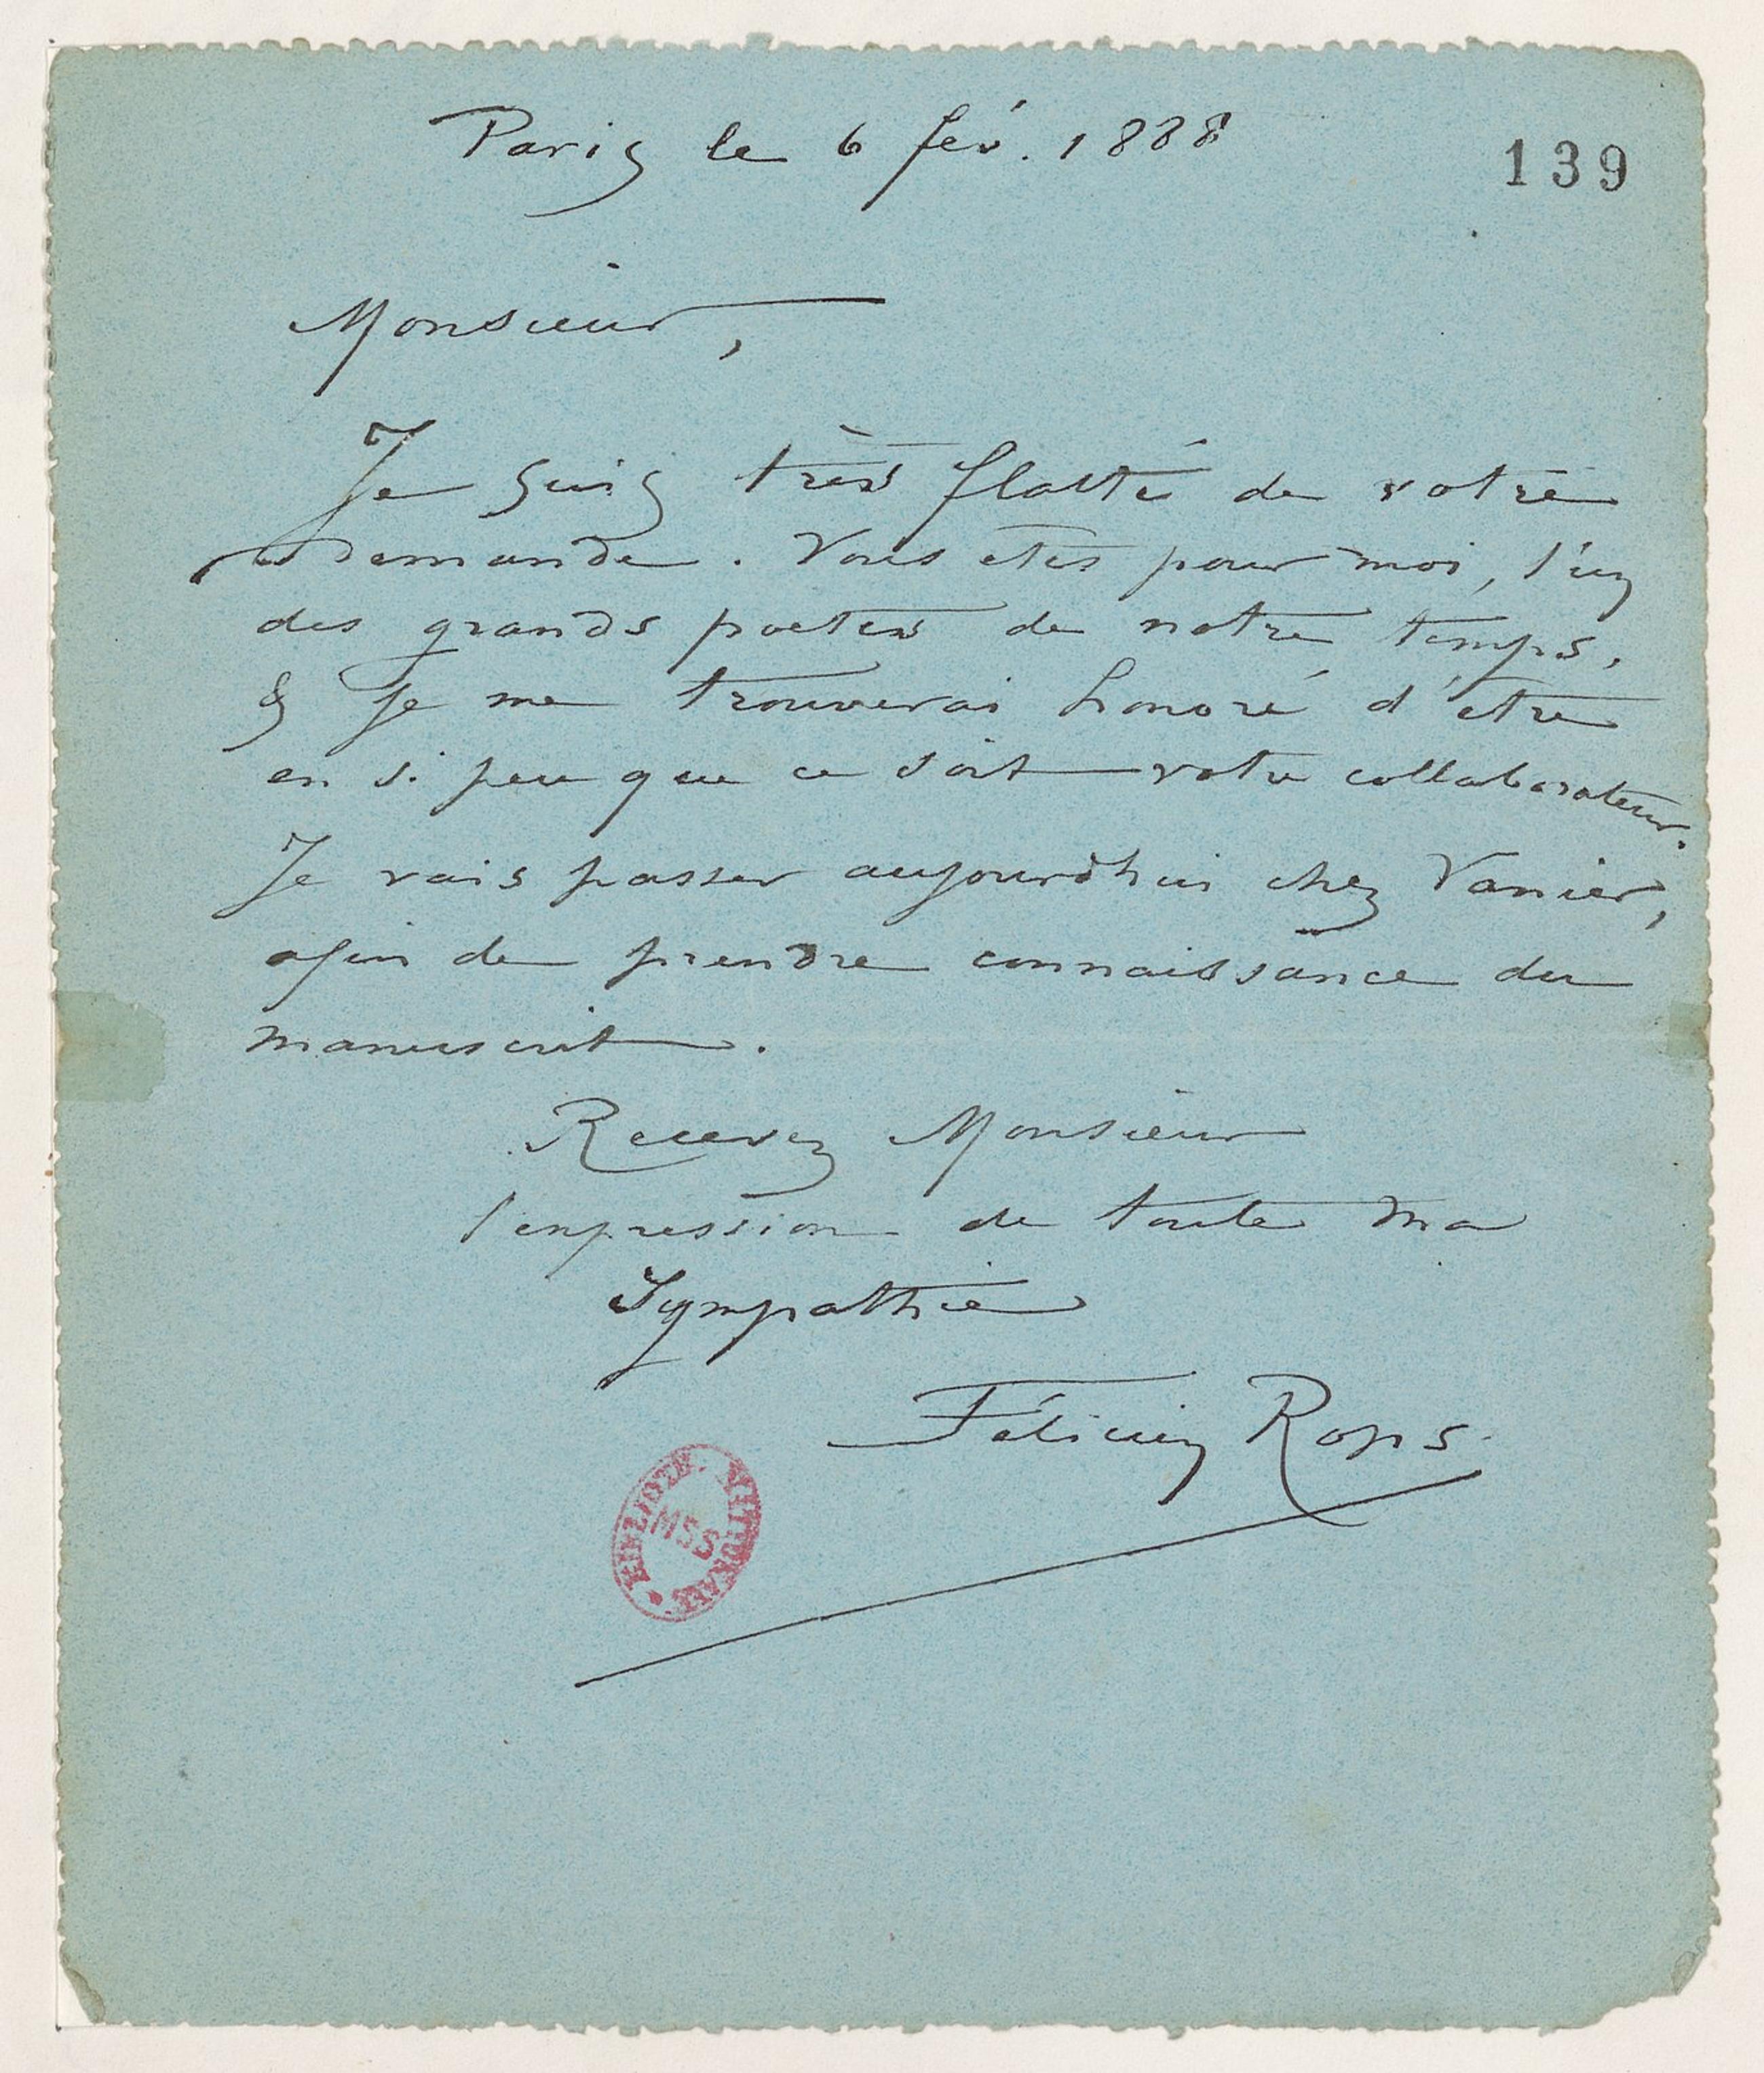 Paris le 6 fév. 1888
139
Monsieur,
Je suis très flatté de votre
demande. Vous etes pour moi, l'un
des grands poetes de notre temps,
& je me trouverai honoré d'etre
en si peu que ce soit votre collaborateur.
Je vais passer aujourdhui chez Vanier,
afin de prendre connaissance du
manuscrit.
Recevez Monsieur
l'expression de toute ma
Sympathie
Félicien Rops
BIBLIOTH. LITTÉRAIRE
MSS